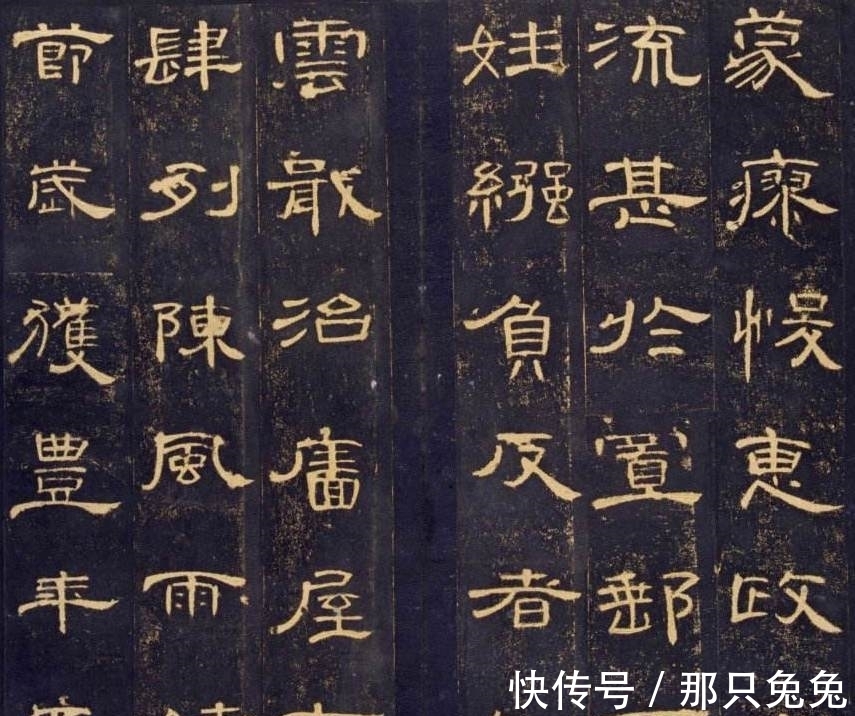 蒙瘳悛惠政
流甚於置郵
姓繦負反者
雲戢治廧屋
肆列陳風雨
節歲獲豐年
快传号 / 那只兔兔